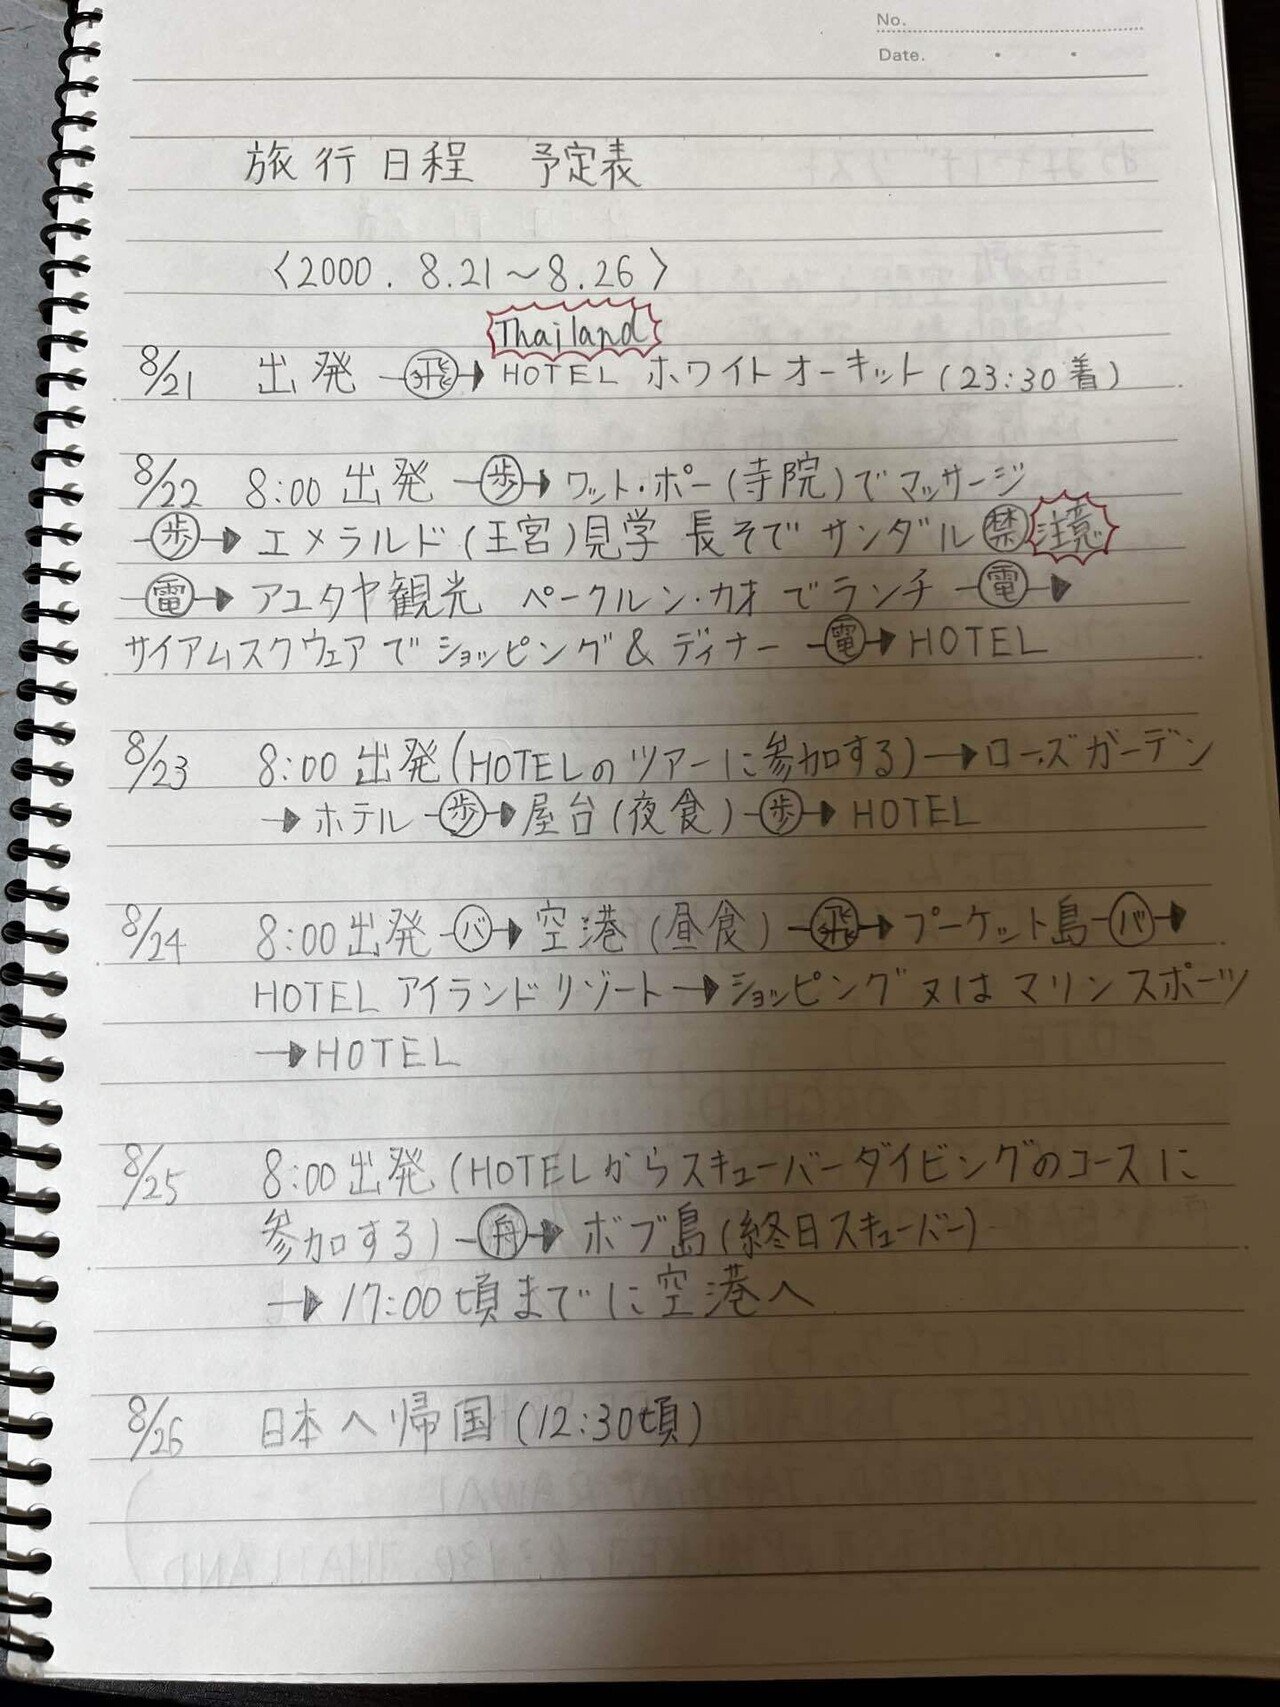 No.
Date.
旅行日程　予定表
〈2000. 8.21～8.26〉
Thailand
8/21 出発 ―㊙飛→ HOTEL ホワイトオーキット(23:30着)
8/22 8:00 出発 ―(歩)→ ワット・ポー(寺院)でマッサージ
―(歩)→ エメラルド(王宮)見学 長そで サンダル(禁) 注意
―(電)→ アユタヤ観光 ペークルン・カオでランチ ―(電)→
サイアムスクウェアでショッピング & ディナー ―(電)→ HOTEL
8/23 8:00 出発(HOTELのツアーに参加する) → ローズガーデン
→ ホテル ―(歩)→ 屋台(夜食) ―(歩)→ HOTEL
8/24 8:00 出発 ―(バ)→ 空港(昼食) ―(飛)→ プーケット島 ―(バ)→
HOTEL アイランドリゾート → ショッピング又はマリンスポーツ
→ HOTEL
8/25 8:00 出発(HOTELからスキューバーダイビングのコースに
参加する) ―(舟)→ ボブ島(終日スキューバー)
→ 17:00頃までに空港へ
8/26 日本へ帰国(12:30頃)